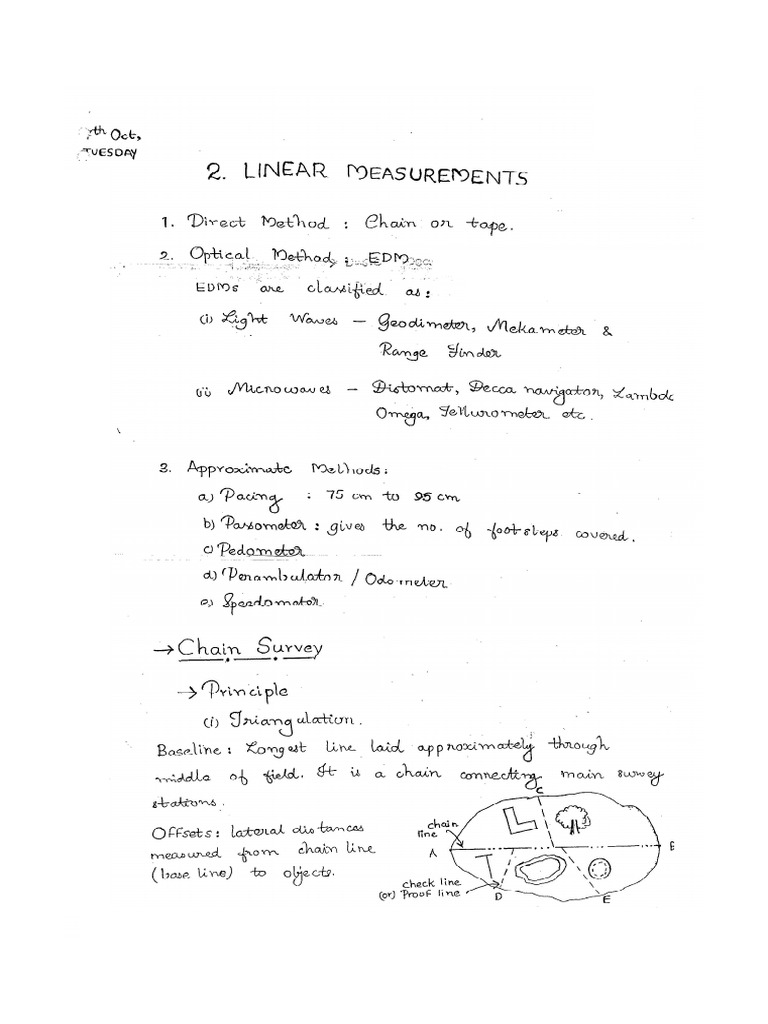 7th Oct,
TUESDAY
2. LINEAR MEASUREMENTS
1. Direct Method : Chain or tape.
2. Optical Method : EDM
EDMs are classified as :
(i) Light Waves — Geodimeter, Mekameter &
Range Finder
(ii) Microwaves — Distomat, Decca navigator, Lambda
Omega, Tellurometer etc.
3. Approximate Methods :
a) Pacing : 75 cm to 95 cm
b) Passometer : gives the no. of footsteps covered.
c) Pedometer
d) Perambulator / Odometer
e) Speedometer
→ Chain Survey
→ Principle
(i) Triangulation.
Baseline : Longest line laid approximately through
middle of field. It is a chain connecting main survey
stations.
Offsets : lateral distances
measured from chain line
(base line) to objects.
C
chain
line
A
B
check line
(or) Proof line
D
E